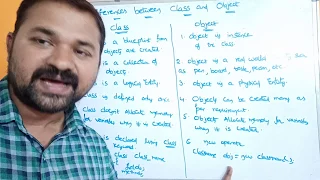 ferences between Class and Object
Class
is a blueprint from
objects are created
is a collection of
objects.
is a Logical Entity
is defined only once
Class doesn't Allocate memory
when it is created
is declared using Class
keyword
class class_name
fields;
methods
Object
1. Object is instance
of the class
2. Object is a real world
as pen, board, book, etc
3. Object is a physical Entity.
4 Objects can be created many as
per requirement.
5. Allocates memory for variables
when it is created.
6. new operator
Classname obj = new classname();